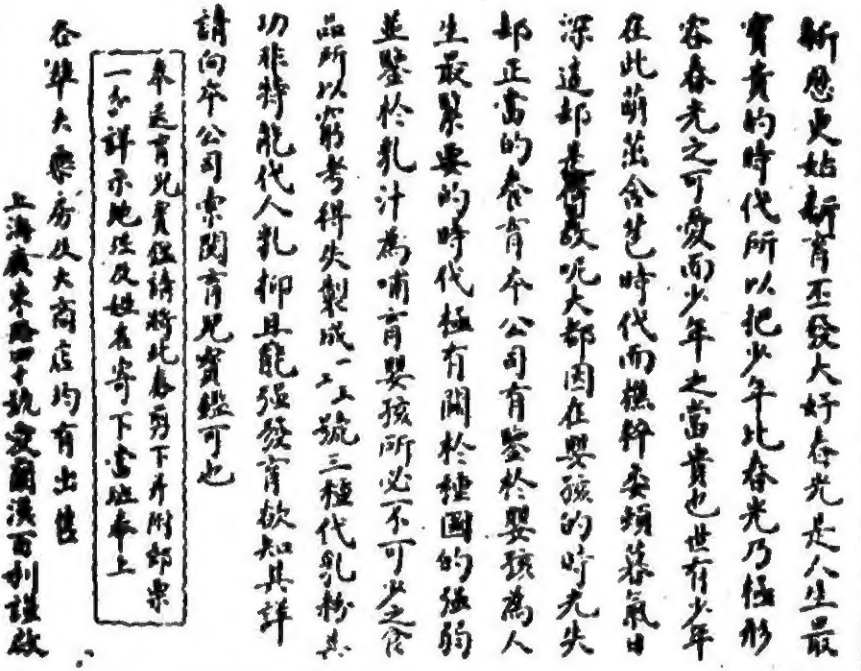 新歷更始新育丕發大好春光是人生最
寶貴的時代所以把少年比春光乃極形
容春光之可愛而少年之當貴也世有少年
在此萌茁含苞時代而憔粹委頓暮氣日
深這都是何故呢大都因在嬰孩的時光失
却正當的養育本公司有鑒於嬰孩為人
生最緊要的時代極有關於種國的強弱
並鑒於乳汁為哺育嬰孩所必不可少之食
品所以窮考得失製成一二三號三種代乳粉其
功非特能代人乳抑且能強發育欲知其詳
請向本公司索閱育兒寶鑑可也
奉送育兒寶鑑請將此卷剪下并附郵票
一分詳示地址及姓名寄下當班奉上
各埠大藥房及大商店均有出售
上海廣東路四十號愛蘭漢百利謹啟